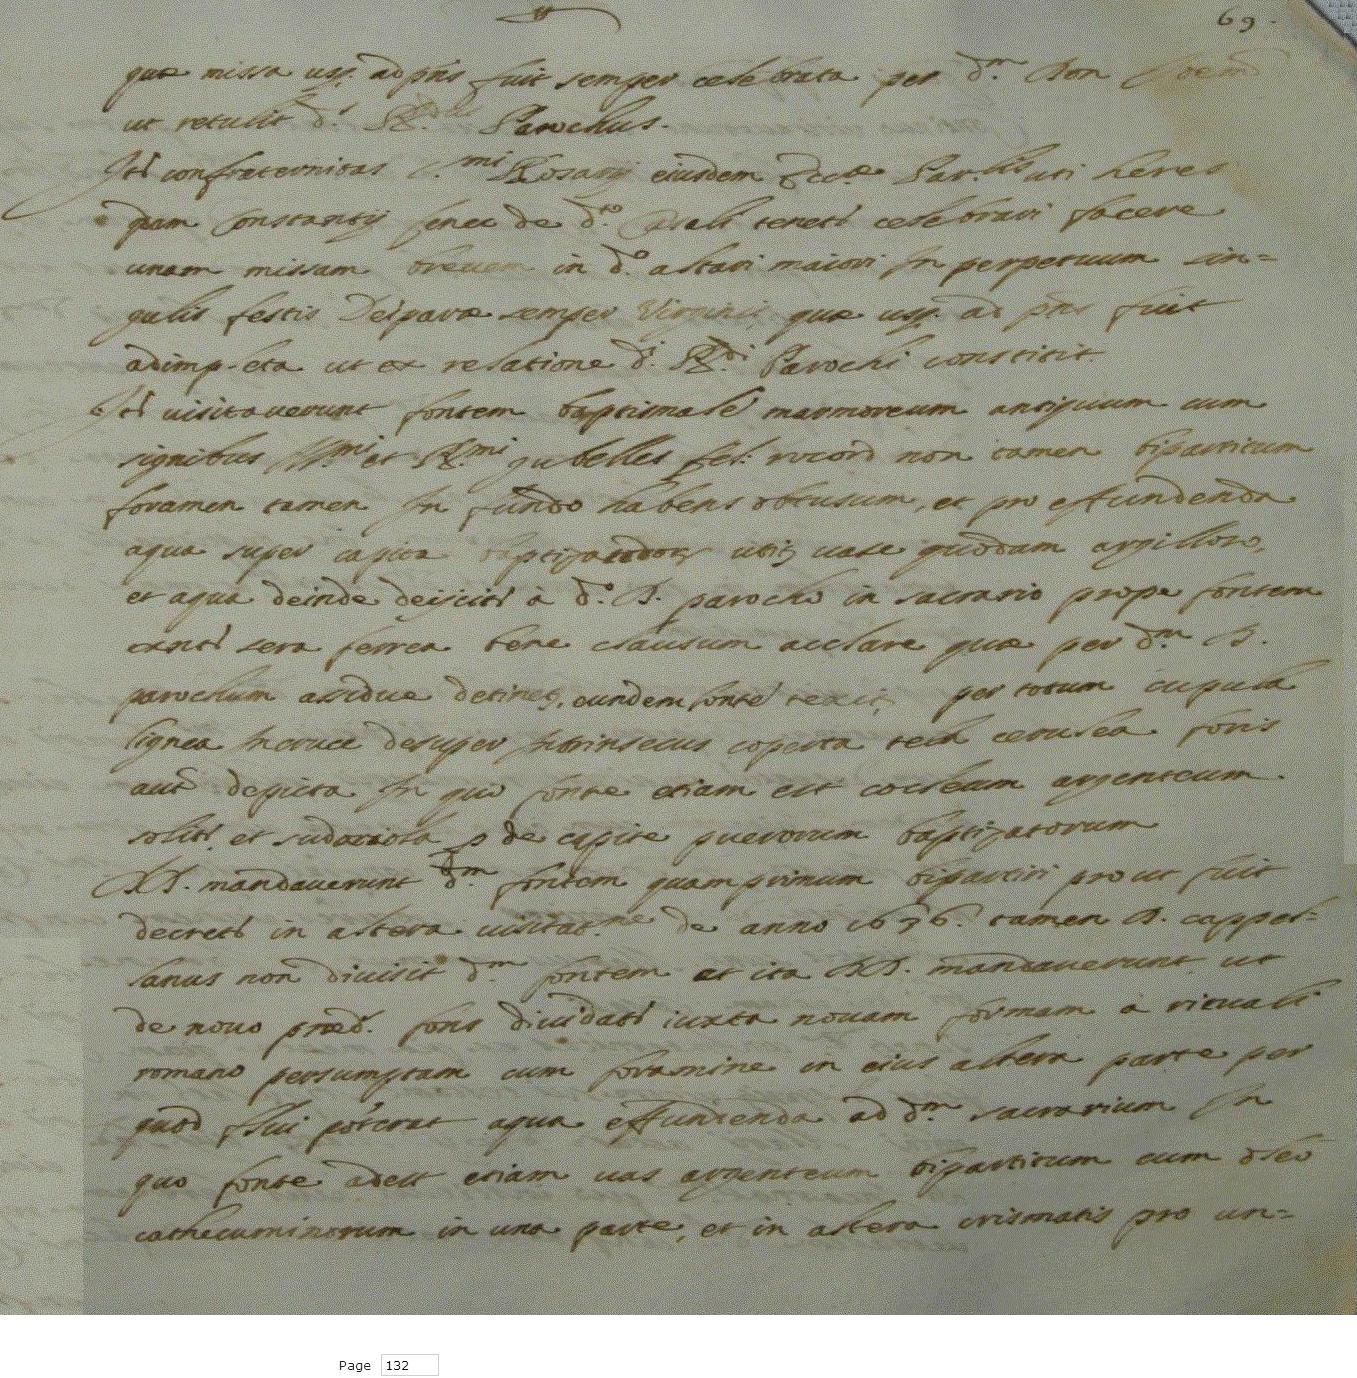 69.
quæ missa usq. ad pñs fuit semper celebrata per d.m Don
ut retulit d.s Parochus.
Itē confraternitas S.mi Rosarij eiusdem eccæ Par.lis uti heres
qdam Constantij de d.to Casali tenetr celebrari facere
unam missam brevem in d.o altari maiori In perpetuum sin=
gulis festis Deiparæ semper Virginis, quæ usq. ad pñs fuit
adimpleta ut ex relatione d.i R.di Parochi constitit
Itē visitaverunt fontem baptismalē marmoreum antiquum cum
signibus Ill.mi et R.mi gubelles fel: record non tamen bipartitum
foramen tamen In fundo habens obtusum, et pro effundenda
aqua super capita baptizandorum utitur vase quodam argilloso,
et aqua deinde deijcitr à d.o R. parocho in sacrario prope fontem
extñti sera ferrea bene clausum ac clave quæ per d.m R.
parochum assidue detinetr, eundem fontē texit per totum cupula
lignea In cruce desuper Intrinsecus coperta tela cerulea foris
autē depicta In quo fonte etiam est cocleam argenteum
solitū et sudariola p de capite puerorum baptizatorum
DD. mandaverunt d.m fontem quamprimum bipartiri prout fuit
decretū in altera visitat.ne de anno 1636. tamen R. cappel=
lanus non divisit d.m fontem et ita DD. mandaverunt ut
de novo præd. fons dividatr iuxta novam formam a rituali
romano persumptam cum foramine in eius altera parte per
quod flui poterat aqua effundenda ad d.m sacrarium In
quo fonte adest etiam vas argenteum bipartitum cum oleo
cathecuminorum in una parte, et in altera crismatis pro un=
Page 132